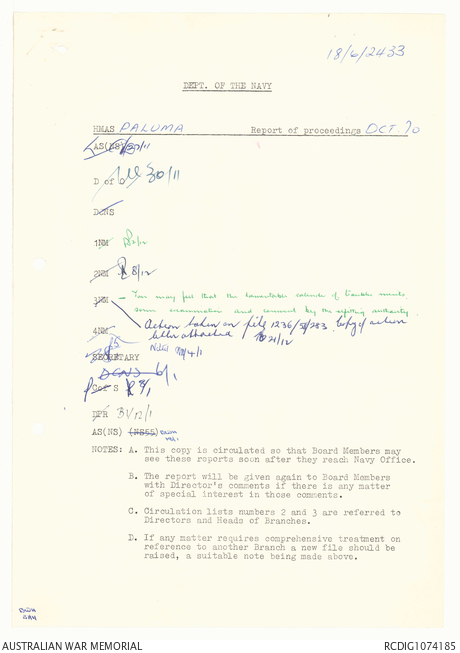 18/6/2433
DEPT. OF THE NAVY
HMAS PALUMA Report of proceedings OCT. 70
AS(NS) 30/11
D of O 30/11
DCNS
1NM 2/12
2NM 8/12
3NM – You may feel that the lamentable calendar of trouble merits
some examination and comment by the reporting authority.
Action taken on file 1236/51/283. Copy of action
4NM letter attached 21/12
Noted 4/1
SECRETARY
DCNS 6/1
CofS 8/1
DPR 12/1
AS(NS) (NS55)
NOTES: A. This copy is circulated so that Board Members may
see these reports soon after they reach Navy Office.
B. The report will be given again to Board Members
with Director's comments if there is any matter
of special interest in those comments.
C. Circulation lists numbers 2 and 3 are referred to
Directors and Heads of Branches.
D. If any matter requires comprehensive treatment on
reference to another Branch a new file should be
raised, a suitable note being made above.
AUSTRALIAN WAR MEMORIAL RCDIG1074185